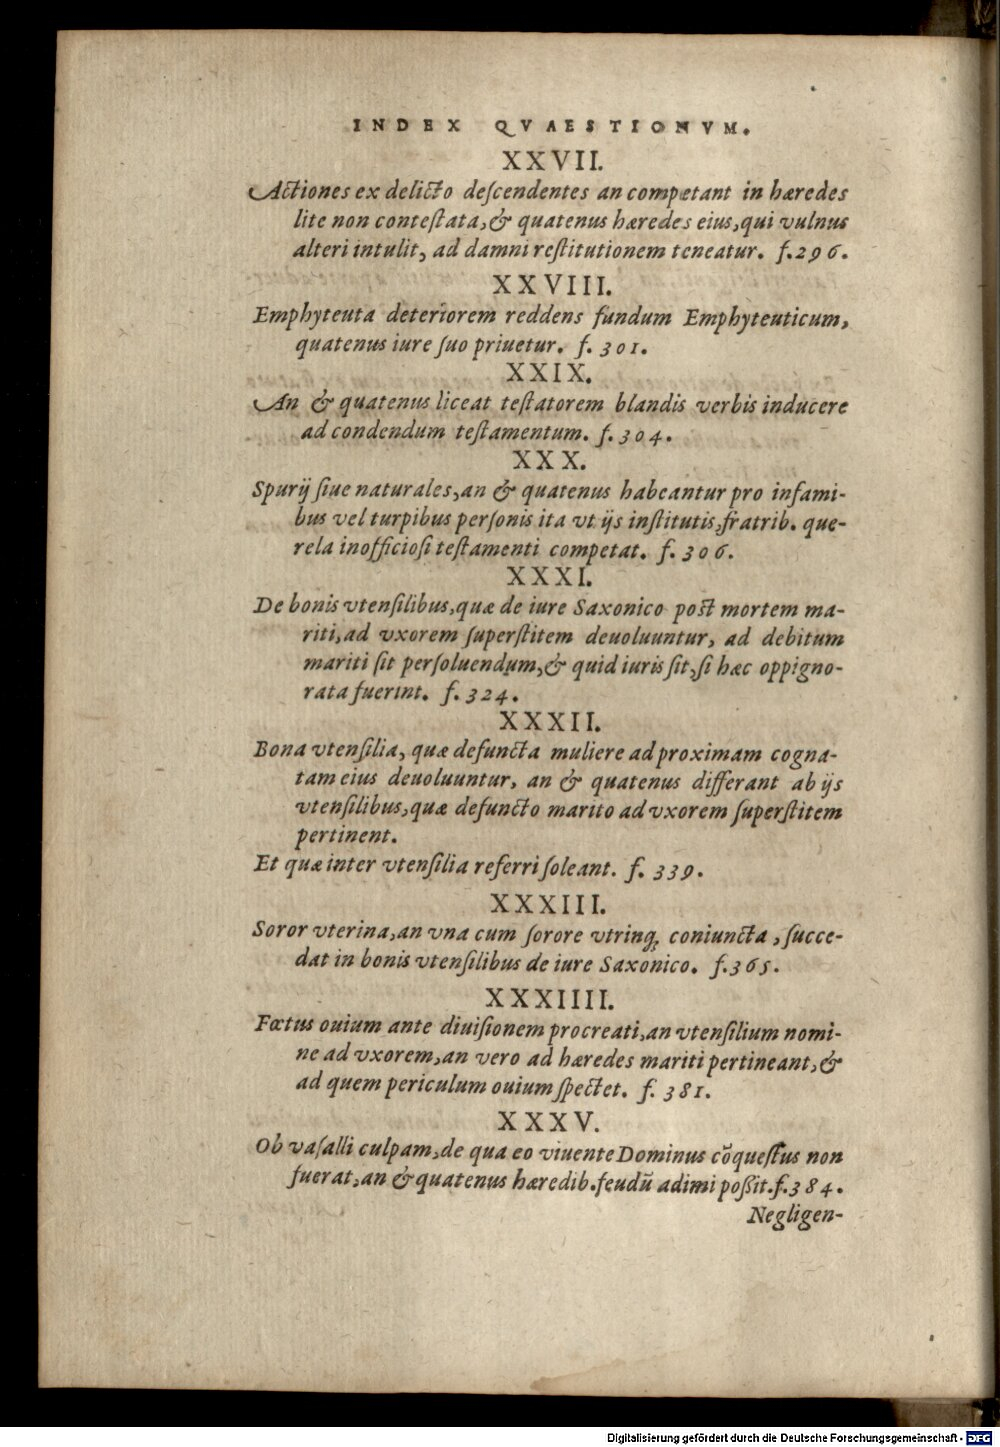 INDEX QVAESTIONVM.
XXVII.
Actiones ex delicto deſcendentes an competant in hæredes
lite non conteſtata, & quatenus hæredes eius, qui vulnus
alteri intulit, ad damni reſtitutionem teneatur. f. 296.
XXVIII.
Emphyteuta deteriorem reddens fundum Emphyteuticum,
quatenus iure ſuo priuetur. f. 301.
XXIX.
An & quatenus liceat teſtatorem blandis verbis inducere
ad condendum teſtamentum. f. 304.
XXX.
Spurij ſiue naturales, an & quatenus habeantur pro infami-
bus vel turpibus perſonis ita vt ijs inſtitutis, fratrib. que-
rela inofficioſi teſtamenti competat. f. 306.
XXXI.
De bonis vtenſilibus, quæ de iure Saxonico post mortem ma-
riti, ad vxorem ſuperſtitem deuoluuntur, ad debitum
mariti ſit perſoluendum, & quid iuris ſit, ſi hæc oppigno-
rata fuerint. f. 324.
XXXII.
Bona vtenſilia, quæ defuncta muliere ad proximam cogna-
tam eius deuoluuntur, an & quatenus differant ab ijs
vtenſilibus, quæ defuncto marito ad vxorem ſuperſtitem
pertinent.
Et quæ inter vtenſilia referri ſoleant. f. 339.
XXXIII.
Soror vterina, an vna cum ſorore vtrinq; coniuncta, ſucce-
dat in bonis vtenſilibus de iure Saxonico. f. 365.
XXXIIII.
Fœtus ouium ante diuiſionem procreati, an vtenſilium nomi-
ne ad vxorem, an vero ad hæredes mariti pertineant, &
ad quem periculum ouium ſpectet. f. 381.
XXXV.
Ob vaſalli culpam, de qua eo viuente Dominus cõqueſtus non
fuerat, an & quatenus hæredib. feudũ adimi poßit. f. 384.
Negligen-
Digitalisierung gefördert durch die Deutsche Forschungsgemeinschaft - DFG